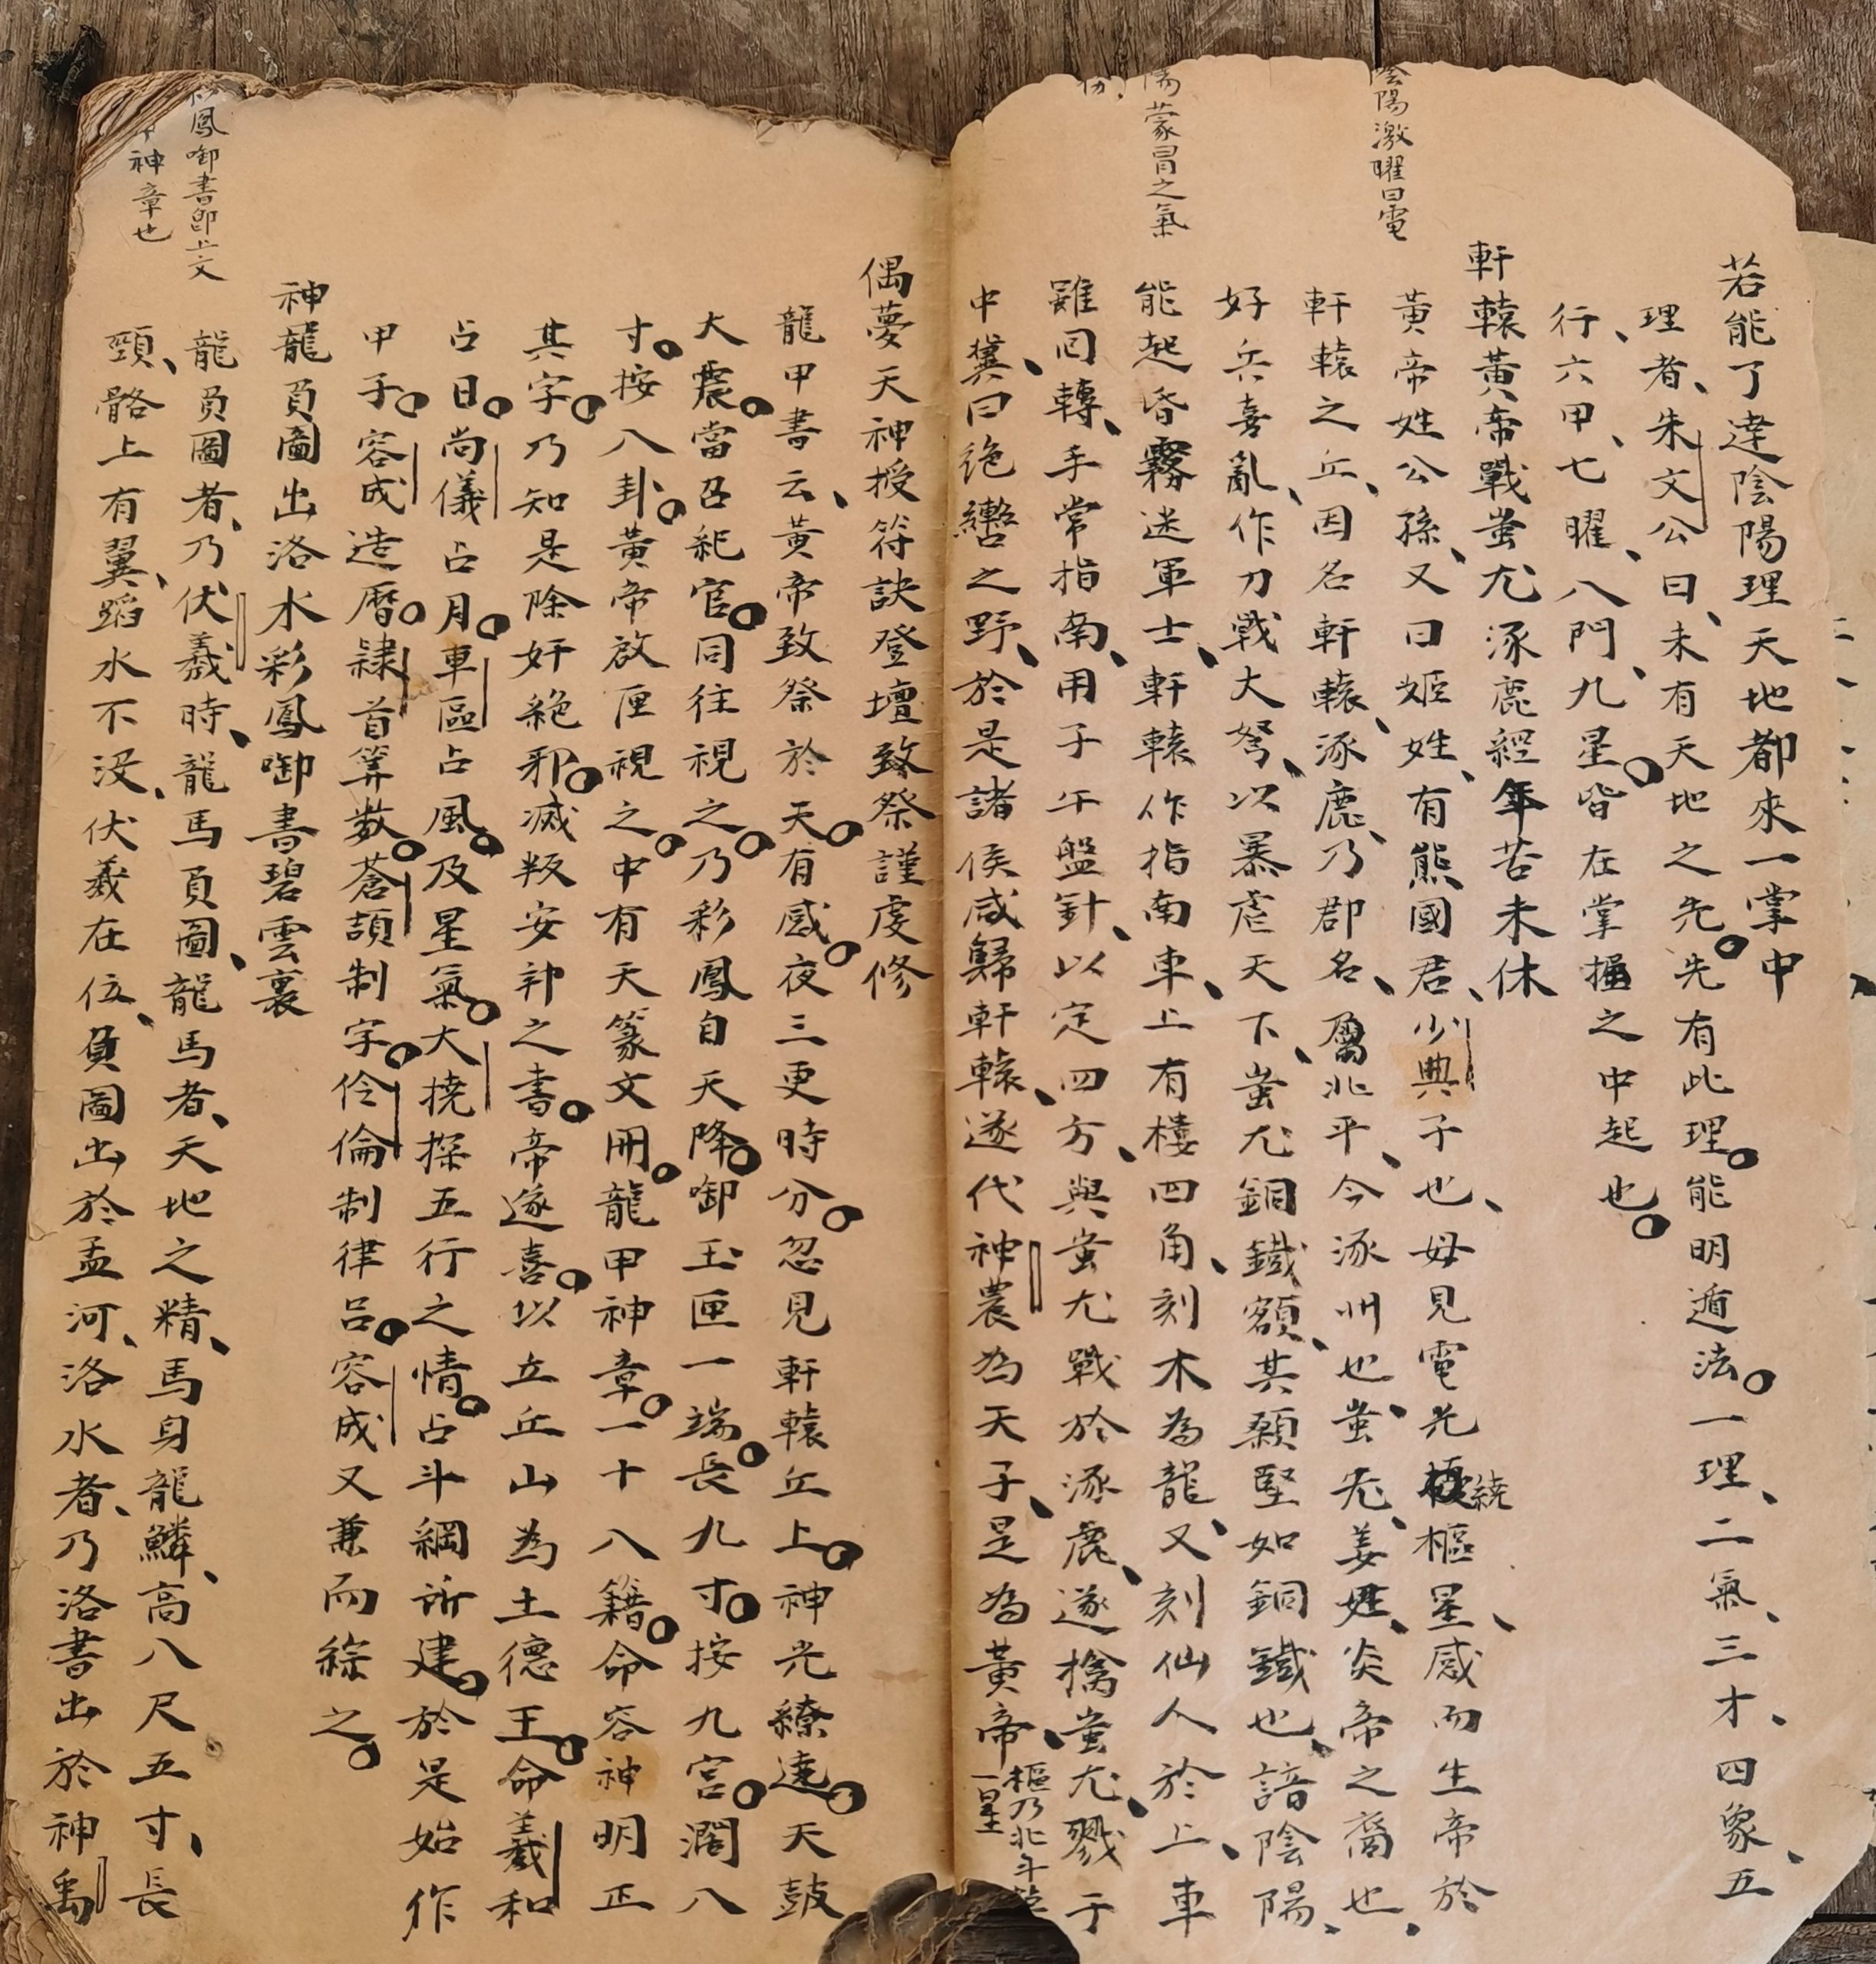 若能了達陰陽理天地都來一掌中
理者、朱文公曰、未有天地之先。先有此理。能明遁法。一理、二氣、三才、四象、五
行、六甲、七曜、八門、九星。皆在掌握之中起也。
軒轅黃帝戰蚩尤涿鹿經年苦未休
黃帝姓公孫、又曰姬姓、有熊國君、少典子也、母見電光繞樞星、感而生帝於
軒轅之丘、因名軒轅、涿鹿、乃郡名、屬北平、今涿州也、蚩尤、姜姓、炎帝之裔也、
好兵喜亂、作刀戟大弩、以暴虐天下、蚩尤銅鐵額、其顙堅如銅鐵也、諳陰陽、
能起昏霧迷軍士、軒轅作指南車、上有樓四角、刻木為龍、又刻仙人於上、車
雖回轉、手常指南、用子午盤針、以定四方、與蚩尤戰於涿鹿、遂擒蚩尤、戮于
中冀、曰绝轡之野、於是諸侯咸歸軒轅、遂代神農為天子、是為黃帝、
樞乃北斗第
一星
陰陽激曜曰電
蒙冒之氣
偶夢天神授符訣登壇致祭謹虔修
龍甲書云、黃帝致祭於天。有感。夜三更時分。忽見軒轅丘上。神光繚遶。天鼓
大震。當召祀官。同往視之。乃彩鳳自天降。啣玉匣一端。長九寸。按九宮。濶八
寸。按八卦。黃帝啟匣視之。中有天篆文冊。龍甲神章。一十八籍。命容神明正
其字。乃知是除奸絕邪。滅叛安邦之書。帝遂喜。以立丘山為土德王。命羲和
占日。尚儀占月。車區占風。及星氣。大撓探五行之情。占斗綱所建。於是始作
甲子。容成造曆。隸首筭數。蒼頡制字。伶倫制律呂。容成又兼而綜之。
神龍負圖出洛水彩鳳啣書碧雲裏
龍負圖者、乃伏羲時、龍馬負圖、龍馬者、天地之精、馬身龍鱗、高八尺五寸、長
頸、骼上有翼、蹈水不没、伏羲在位、負圖出於孟河、洛水者、乃洛書出於神禹
鳳啣書即上文
神章也